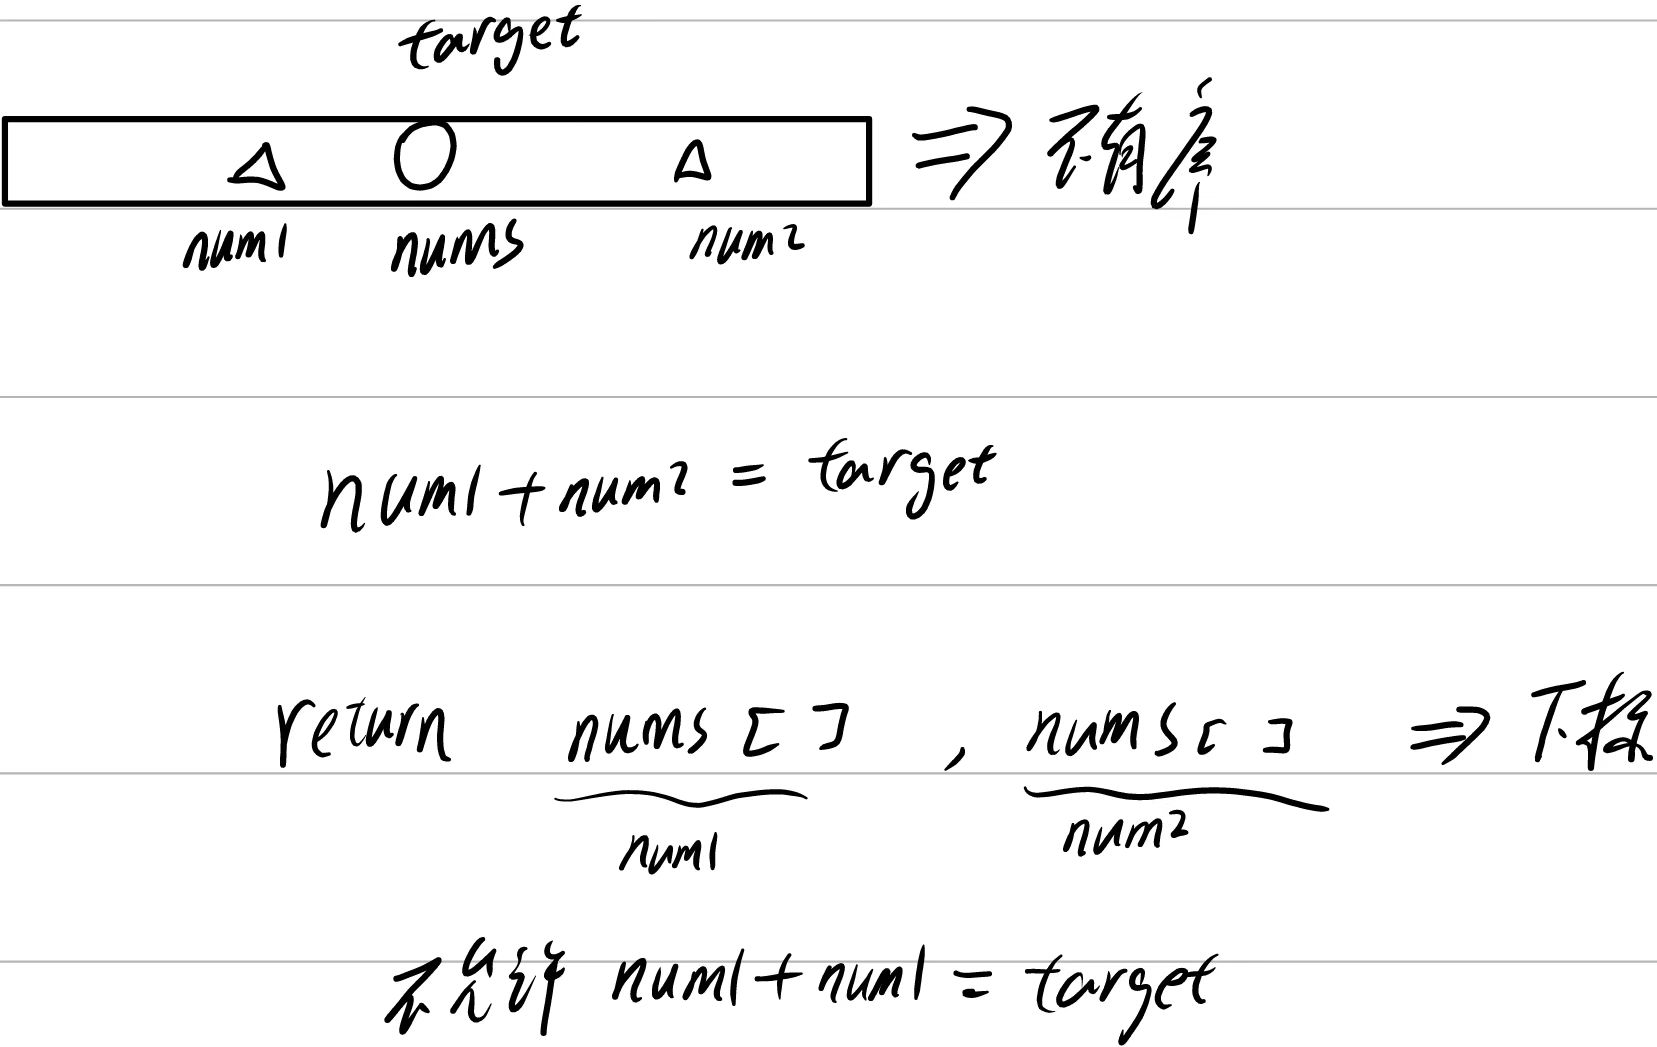 target
⇒ 不有序
num1 nums num2
num1 + num2 = target
return nums [ ] , nums [ ] ⇒ 下标
num1 num2
不允许 num1 + num1 = target